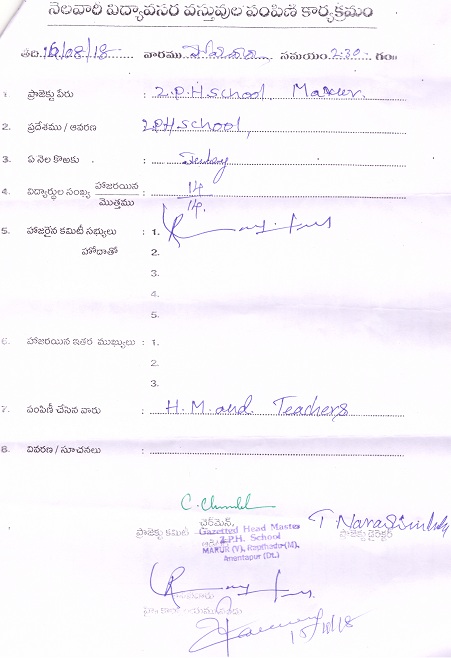 నెలవారి విద్యావసర వస్తువుల పంపిణి కార్యక్రమం
తేది. /08/18 వారము సమయం 2:30 గం॥
1. ప్రాజెక్టు పేరు : Z.P.H school, Marur.
2. ప్రదేశము / ఆవరణ : Z.P.H school,
3. ఏ నెల కొఱకు :
4. విద్యార్థుల సంఖ్య హాజరయిన / మొత్తము : 14 / 14.
5. హాజరైన కమిటీ సభ్యులు : 1.
హోదాతో 2.
3.
4.
5.
6. హాజరయిన ఇతర ముఖ్యులు : 1.
2.
3.
7. పంపిణీ చేసిన వారు : H.M. and Teachers
8. వివరణ / సూచనలు :
ప్రాజెక్టు కమిటి చైర్‌మెన్,
Gazetted Head Master
Z.P.H. School
MARUR (V), Rapthadu (M),
Anantapur (Dt.)
T Narasimhulu
ప్రాజెక్టు డైరెక్టర్
15/10/18